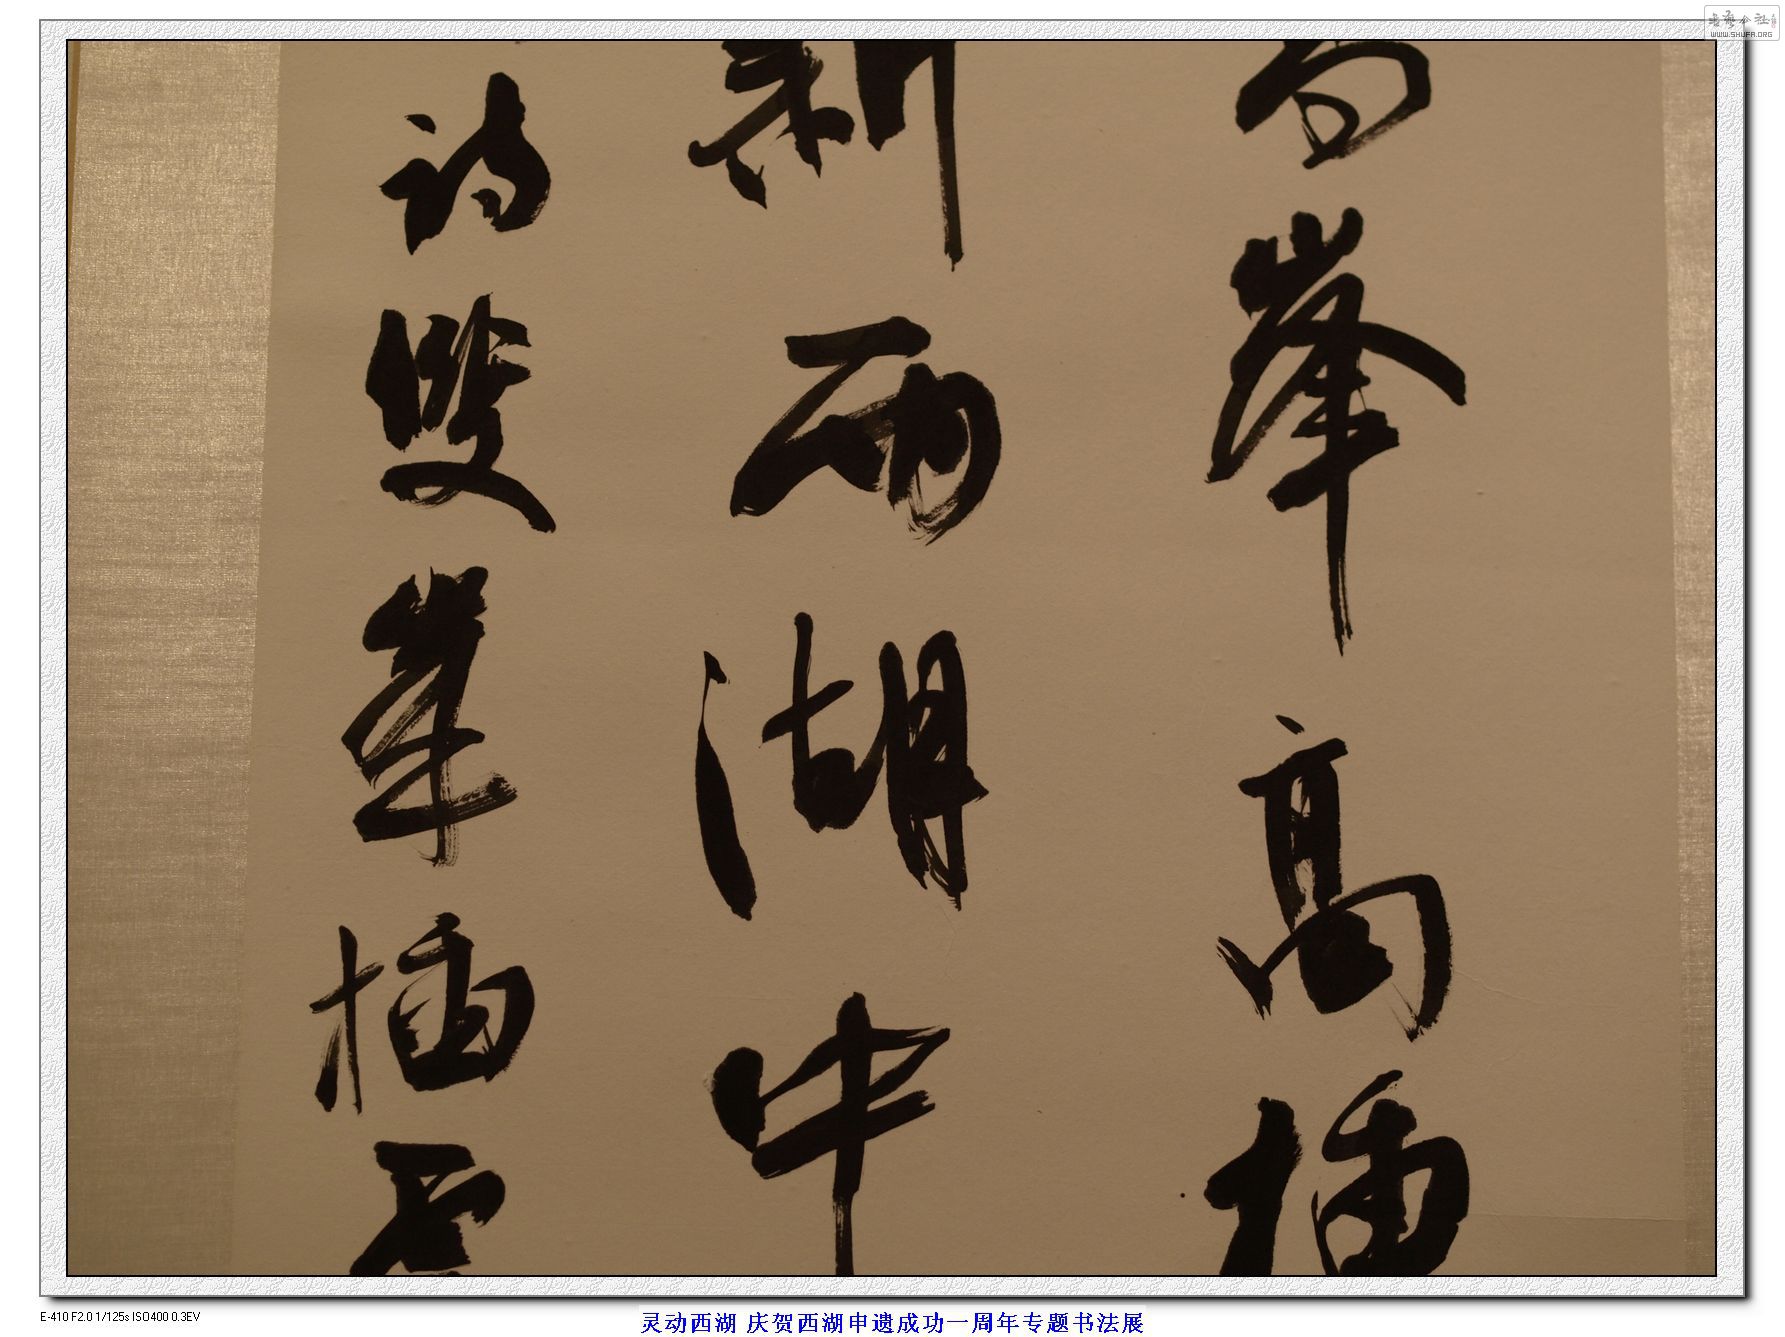 高峯高插
新雨湖中
詩雙峯插雲
书艺公社
WWW.SHUFA.ORG
E-410 F2.0 1/125s ISO400 0.3EV
灵动西湖 庆贺西湖申遗成功一周年专题书法展